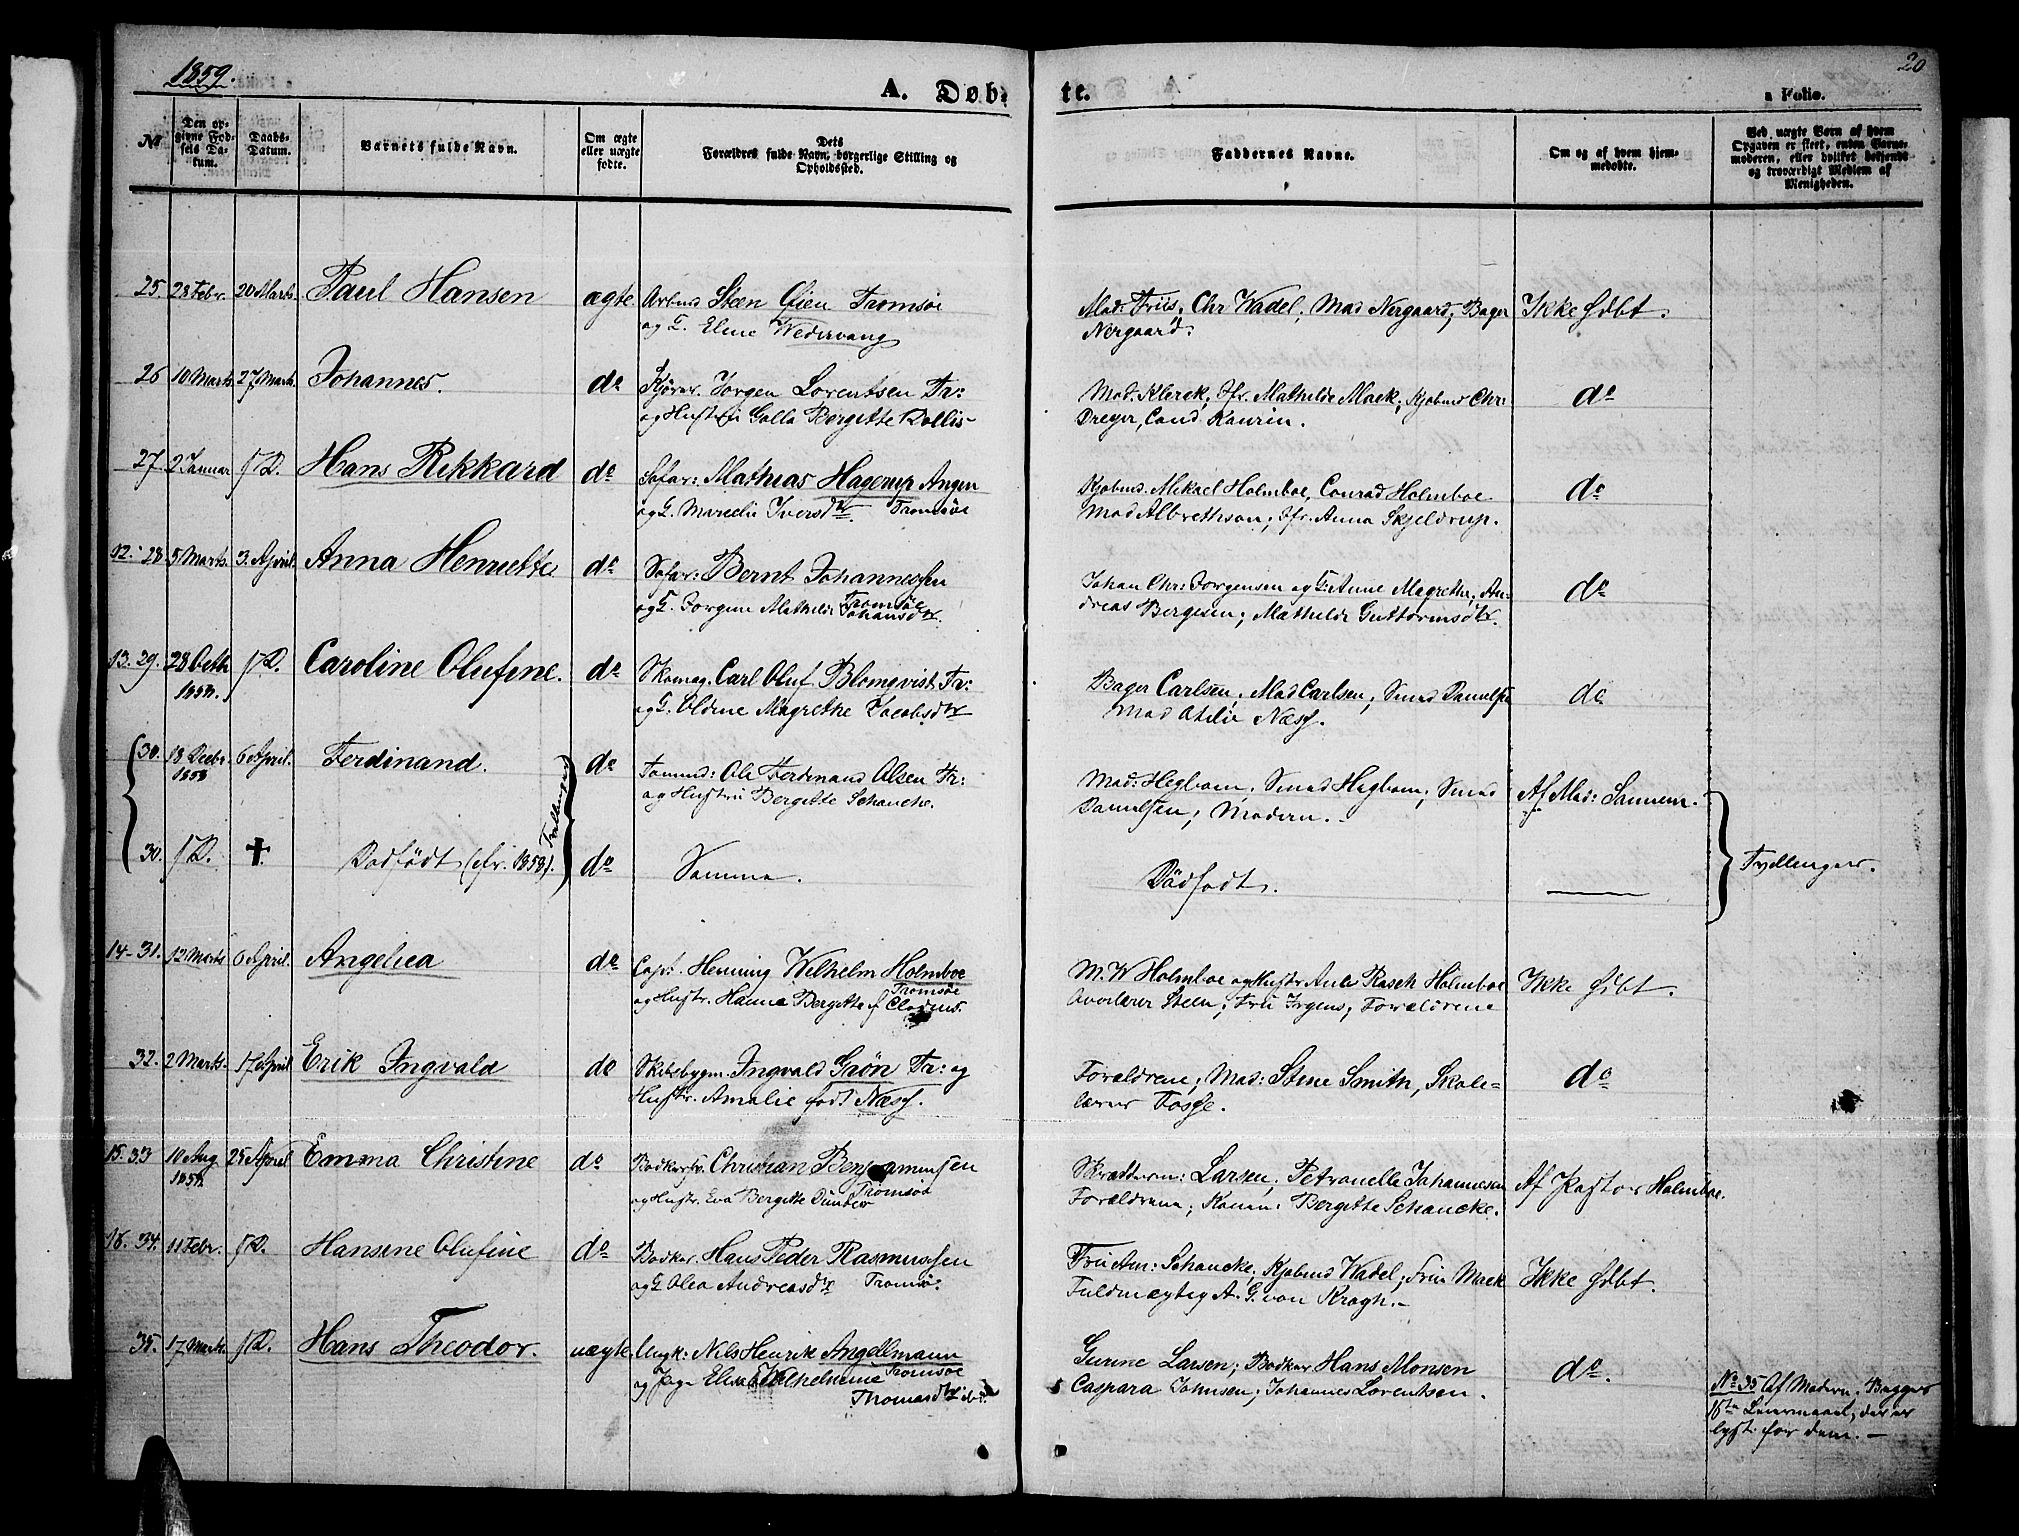 1859.
A. Døb-
te.
20
Folio.
№
Den op-
givne Fød-
sels Da-
tum.
Daabs-
Datum.
Barnets fulde Navn.
Om ægte
eller uægte
fødte.
Dets
Forældres fulde Navn, borgerlige Stilling og
Opholdssted.
Faddernes Navne.
Om og af hvem hjem-
medøbte.
Ved uægte Børn af hvem
Opgaven er skeet, enten Barne-
moderen, eller hvilket bekjendt
og troværdigt Medlem af
Menigheden.
25. 28 Febr. 20 Marts. Paul Hansen ægte. Arbmd Steen Øien Tromsøe
og H. Eline Wedervang
Mad: Friis; Chr Wadel; Mad Nergaard; Bager
Nergaard.
Ikke hdbt.
26 10 Marts. 27 Marts. Johannes. do Jørgen Lorentsen Tr:
og Hustru Galla Bergitte Rollis-
Mad. Klerck; Jfr. Mathilde Mack; Kjøbmd Chr:
Dreyer, Cand Kaurin.
do
27 2 Januar S. D. Hans Rikkard do Søfar: Mathias Hagerup Angen
og H. Marcelie Iversdtr. Tromsøe
Kjøbmd. Mikael Holmboe, Conrad Holmboe
Mad Albrethson; Jfr. Anna Skjeldrup.
do
12. 28. 5 Marts. 3. April. Anna Henriette do Søfar: Bernt Johannessen
Tromsøe
og H. Jorgine Mathilde Johansdtr.
Johan Chr: Jorgensen og H: Anne Magrethe; An-
dreas Bergesen; Mathilde Guttormsdtr.
do
13. 29. 28 Octb S. D. Caroline Olufine. do Skomag. Carl Oluf Blomqvist Tr:
1858.
og H: Oldine Magrethe Jacobsdtr
Bager Carlsen; Mad Carlsen; Smed Danielsen
Mad Otelie Næss.
do
30. 18 Decbr. 6 April. Ferdinand. do Tømmd: Ole Ferdinand Olsen Tr:
1858
og Hustru Bergitte Schancke.
Mad: Hegbom; Smed Hegbom; Smed
Danielsen; Modern.
Af Mad: Sannem.
Tvillinger
30. S. D. † Dødfødt (cfr. 1858). do Samme.
Dødfødt.
Tvillinger.
14 - 31. 12 Marts 6 April. Angelica do Capt. Henning Wilhelm Holmboe
Tromsøe
og Hustr. Hanna Bergitte f Clodius.
M. W Holmboe og Hustr Anle Rasch Holmboe
Overlærer Steen; Fru Irgens; Forældrene
Ikke hdbt.
32. 2 Marts. 17 April Erik Ingvald do Skibsbygm. Ingvald Grøn Tr: og
Hustr. Amalie født Næss.
Forældrene; Mad: Stine Smith, Skole-
lærer Fosse.
do
15. 33 10 Aug 25 April Emma Christine do Bødkersv. Christian Benjaminsen
1858.
Tromsøe
og Hustr. Eva Bergitte
Skrædderm: Larsen; Petronelle Johannesen
Forældrene; Konen: Bergitte Schancke.
Af Pastor Holmboe.
16. 34. 11 Febr. S. D. Hansine Olufine do Bødker. Hans Peder Rasmussen
og H Olea Andreasdtr Tromsøe
Fru Am: Schancke; Kjøbmd Wadel; Fru Mack
Fuldmægtig A. G. von Krogh.-
Ikke hdbt.
35. 17 Marts. S. D. Hans Theodor. uægte. Ungk: Nils Henrik Angellmann
Tromsøe
og Pige Elisa Wilhelmine
Thomasdtr ibid.
Gurine Larsen; Bødker Hans Monsen
Caspara Johnsen; Johannes Lorentsen.
do.
No 35 Af Modern. Begges
1ste Leiermaal, der er
lyst for dem.-